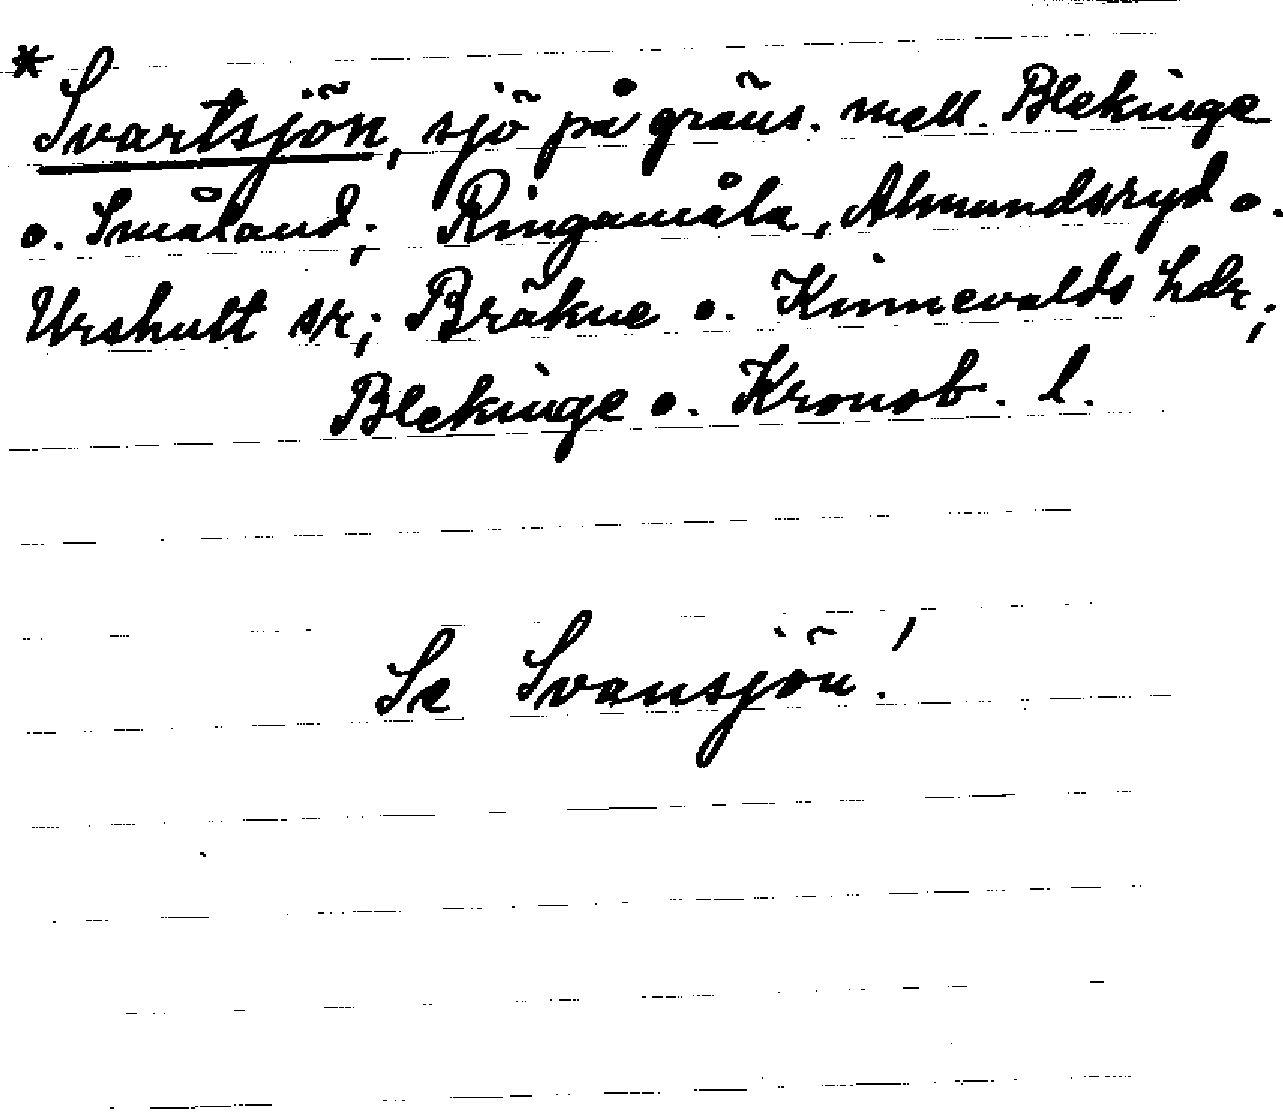 * Svartsjön, sjö på gräns. mell. Blekinge
o. Småland; Ringamåla, Almundsryd o.
Urshult sr; Bräkne o. Kinnevalds hdr;
Blekinge o. Kronob. l.
Se Svansjön!